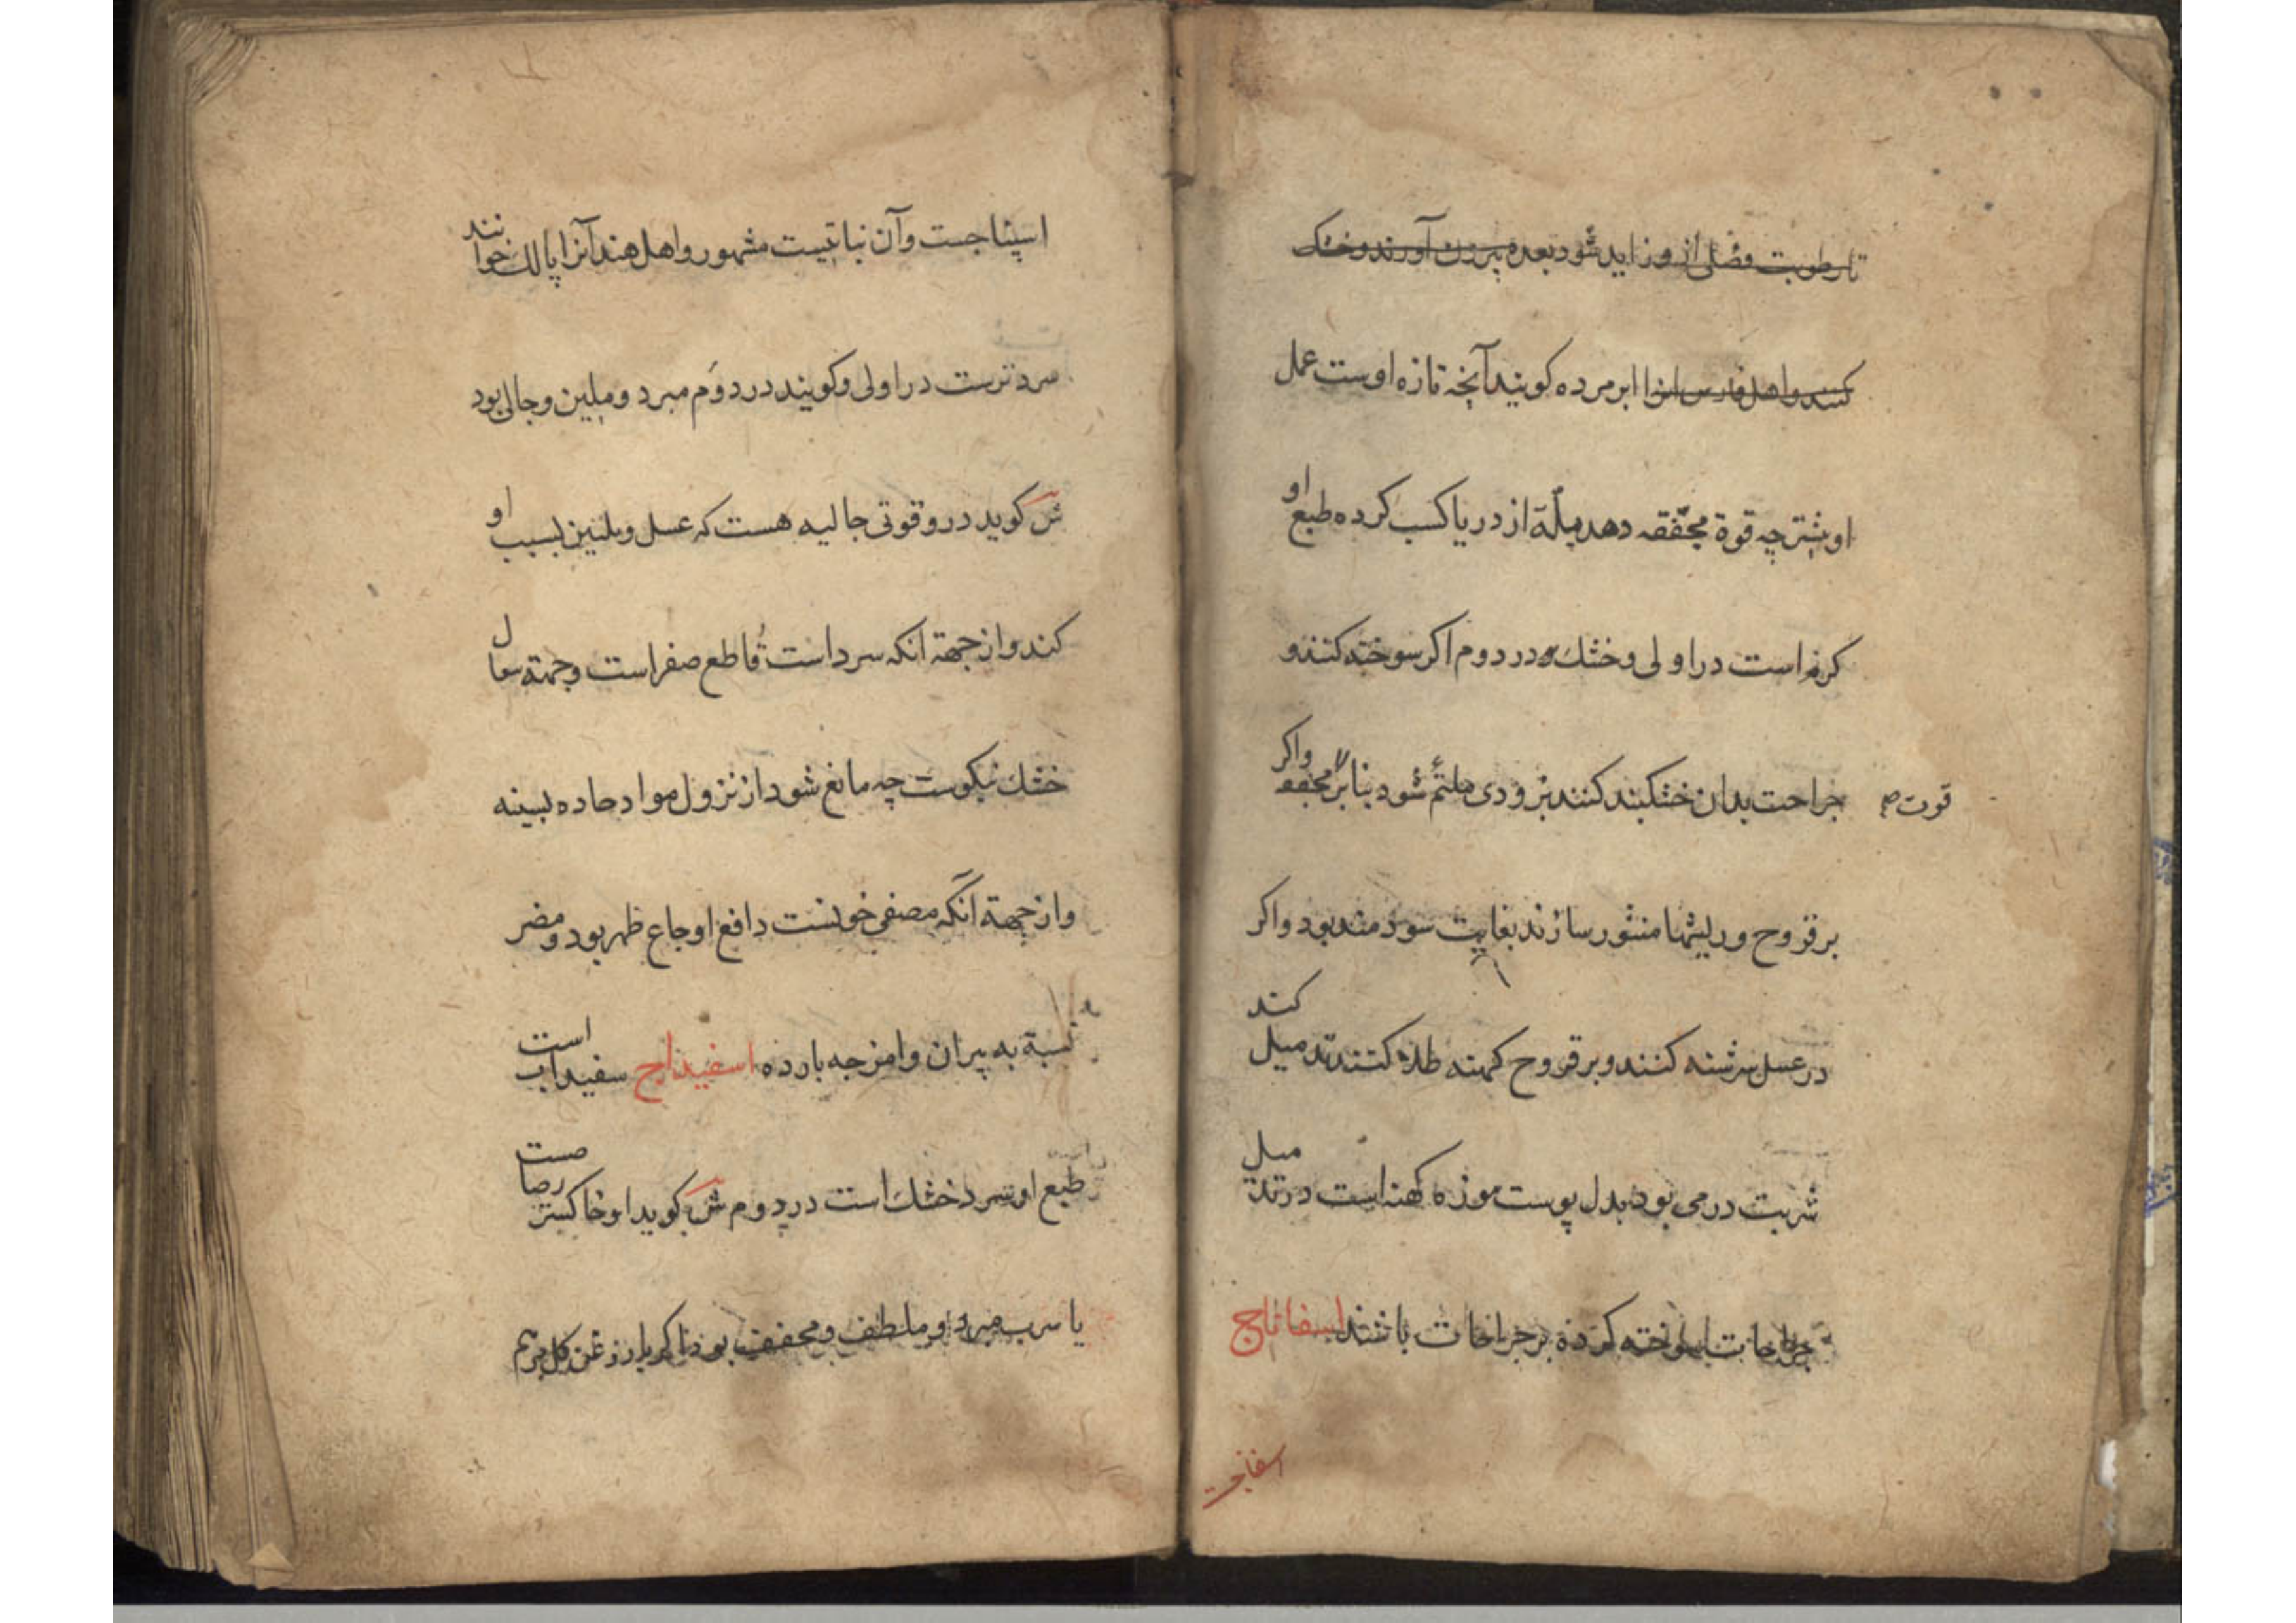 تا رطوبت فضلی از و زاید شود بعده پرزن آورند و خشک
کنند و اهل فارس انرا ابر مرده کویند آنچه تازه اوست عمل
او بیشتر چه قوة مجففه دهد از دریا کسب کرده طبع او
کرم است در اولی و خشك در دوم اکر سوخته کنند و
جراحت بدان خشکبند کنند بزودی ملتئم شود بنا بر مجففه واکر
قوت صح
بر قروح و ریشها منثور سازند بغایت سودمند بود واکر
در عسل سرشته کنند و بر قروح کهنه طلا کنند میل کند
شربت درمی بود بدل پوست موزه کهنه است در میل
جراحات سوخته کرده بر جراحات باشند اسفاناج
اسپناجست وآن نباتیست مشهور واهل هند آنرا پالك خوانند
سرد ترست در اولی وکویند در دوم مبرد وملین وجالی بود
ش کوید درو قوتی جالیه هست که غسل وتلیین بسبب او
کند واز جهة آنکه سرد است قاطع صفراست وجهة سعال
خشك نیکوست چه مانع شود از نزول مواد حاده بسینه
واز جهة آنکه مصفی خونست دافع اوجاع ظهر بود ومضر
نسبة به پیران وامزجه بارده اسفیداج سفیداب است
طبع او سرد خشك است در دوم ش کوید او خاکستر رصاصست
یا سرب مبرد و ملطف و مجفف بود اکر با روغن کل